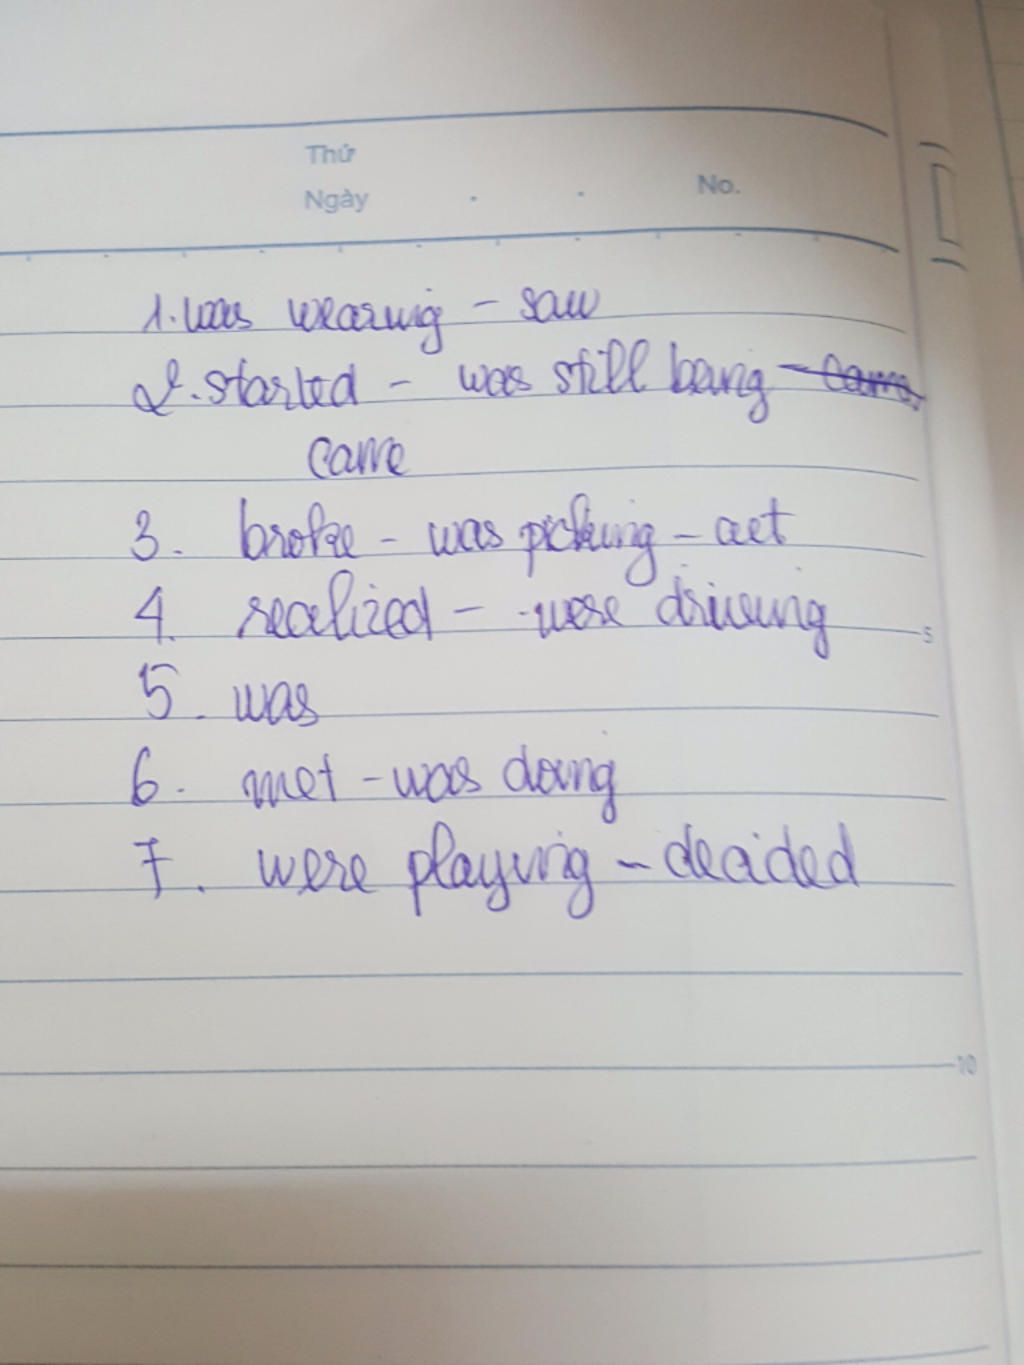 Thứ
Ngày
No.
1. was wearing - saw
2. started - was still being - came
came
3. broke - was picking - cut
4. realized - were driving
5
5. was
6. met - was doing
7. were playing - decided
10